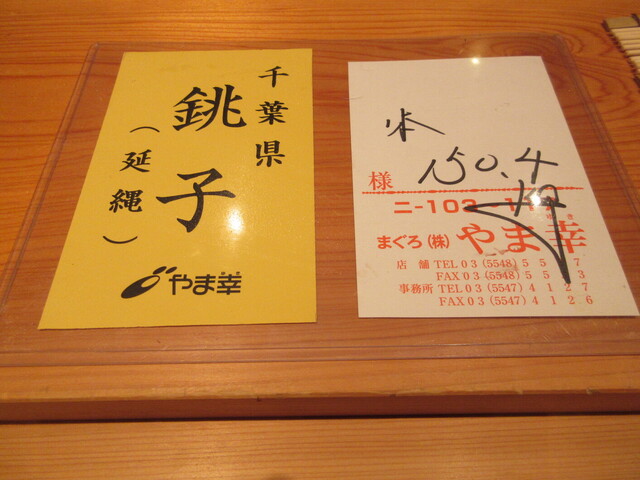 千葉県
銚子
(延縄)
やま幸
150.4
様
ニ-103-11
まぐろ(株)やま幸
店舗 TEL 03 (5548) 5 5 7
FAX 03 (5548) 5 5 3
事務所 TEL 03 (5547) 4 1 2 7
FAX 03 (5547) 4 1 2 6